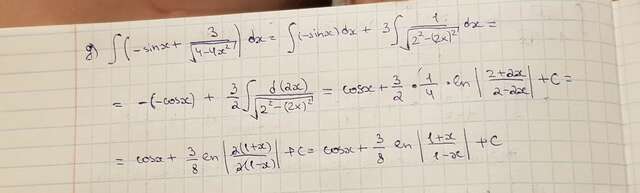 g) ∫(-sinx + 3/√(4-4x²)) dx = ∫(-sinx)dx + 3∫ 1/√(2²-(2x)²) dx =
= -(-cosx) + 3/2 ∫ d(2x)/√(2²-(2x)²) = cosx + 3/2 · 1/4 · ln|(2+2x)/(2-2x)| + C =
= cosx + 3/8 ln|2(1+x)/2(1-x)| + C = cosx + 3/8 ln|(1+x)/(1-x)| + C